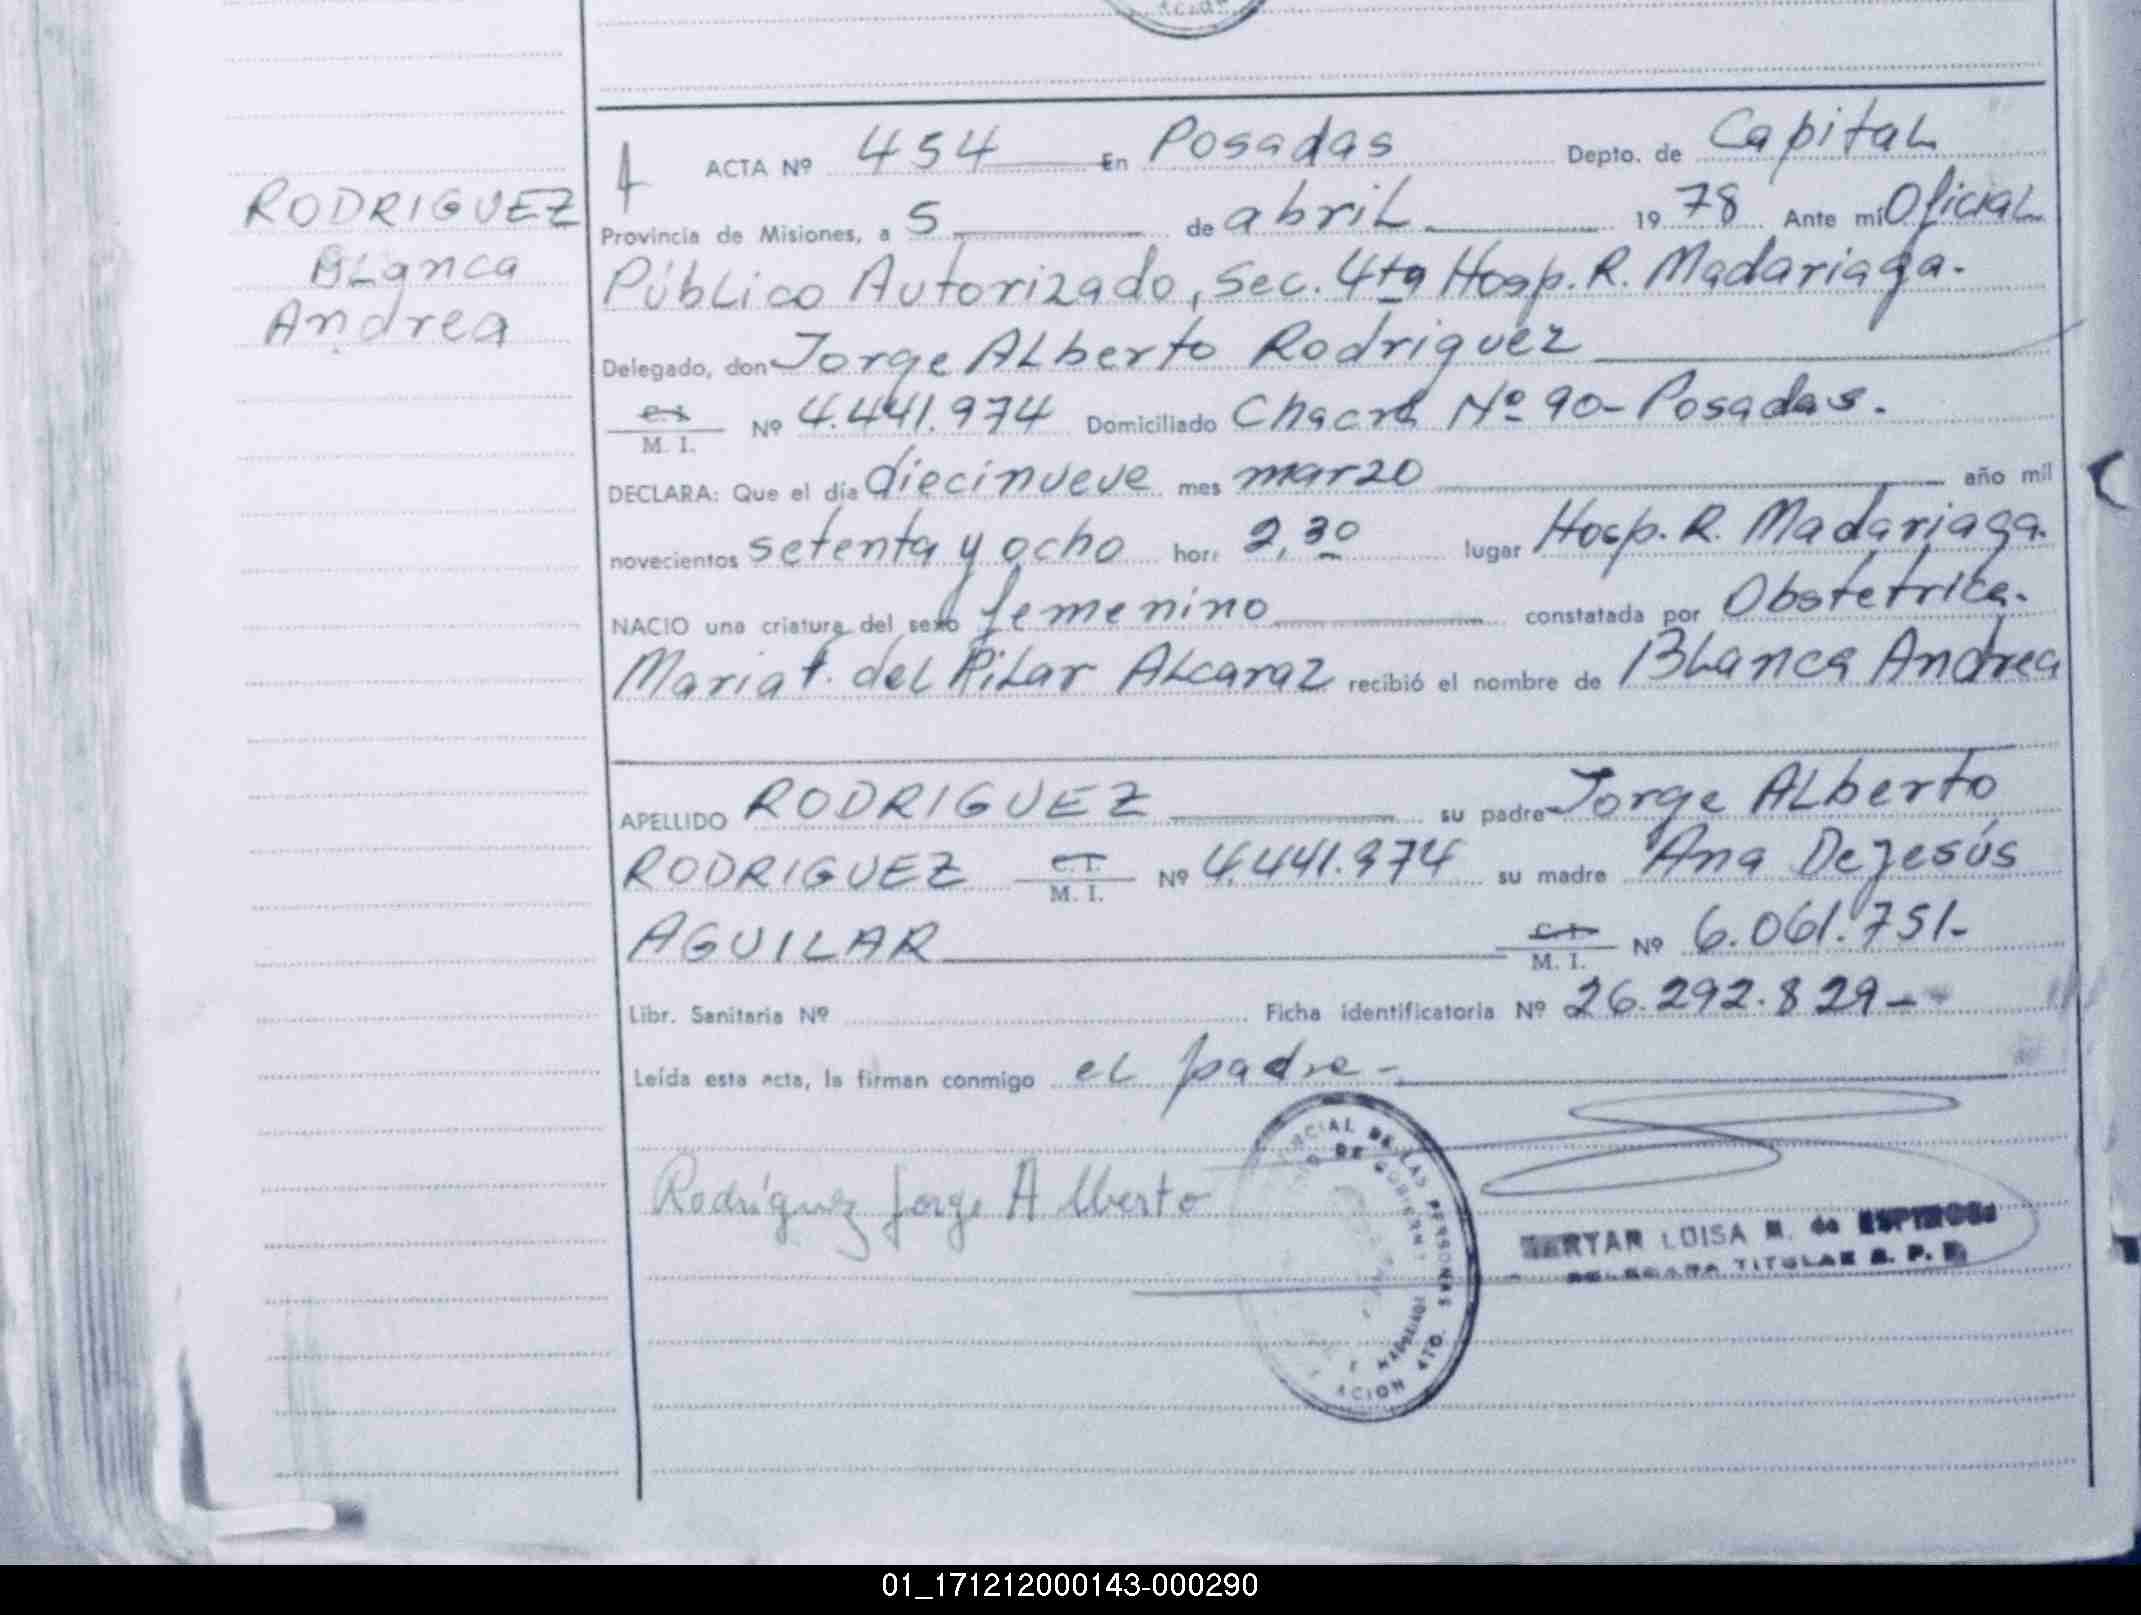 ACION
ACTA Nº 454 En Posadas Depto. de Capital
RODRIGUEZ
Blanca
Andrea
Provincia de Misiones, a 5 de abril 1978 Ante mí Oficial
Público Autorizado, Sec. 4ta Hosp. R. Madariaga.
Delegado, don Jorge Alberto Rodriguez
C.I. M. I. Nº 4.441.974 Domiciliado Chacra Nº 90- Posadas.
DECLARA: Que el día diecinueve mes marzo año mil
novecientos setenta y ocho hora 2,30 lugar Hosp. R. Madariaga.
NACIO una criatura del sexo femenino constatada por Obstetrica.
Maria t. del Pilar Alcaraz recibió el nombre de Blanca Andrea
APELLIDO RODRIGUEZ su padre Jorge Alberto
RODRIGUEZ C.I. M. I. Nº 4.441.974 su madre Ana Dejesús
AGUILAR C.I. M. I. Nº 6.061.751-
Libr. Sanitaria Nº Ficha identificatoria Nº 26.292.829-
Leída esta acta, la firman conmigo el padre-
Rodríguez Jorge Alberto
DE LAS PERSONAS
ACION 4TO.
LUISA M. de ESPINOSA
TITULAR R. P. P.
01_171212000143-000290